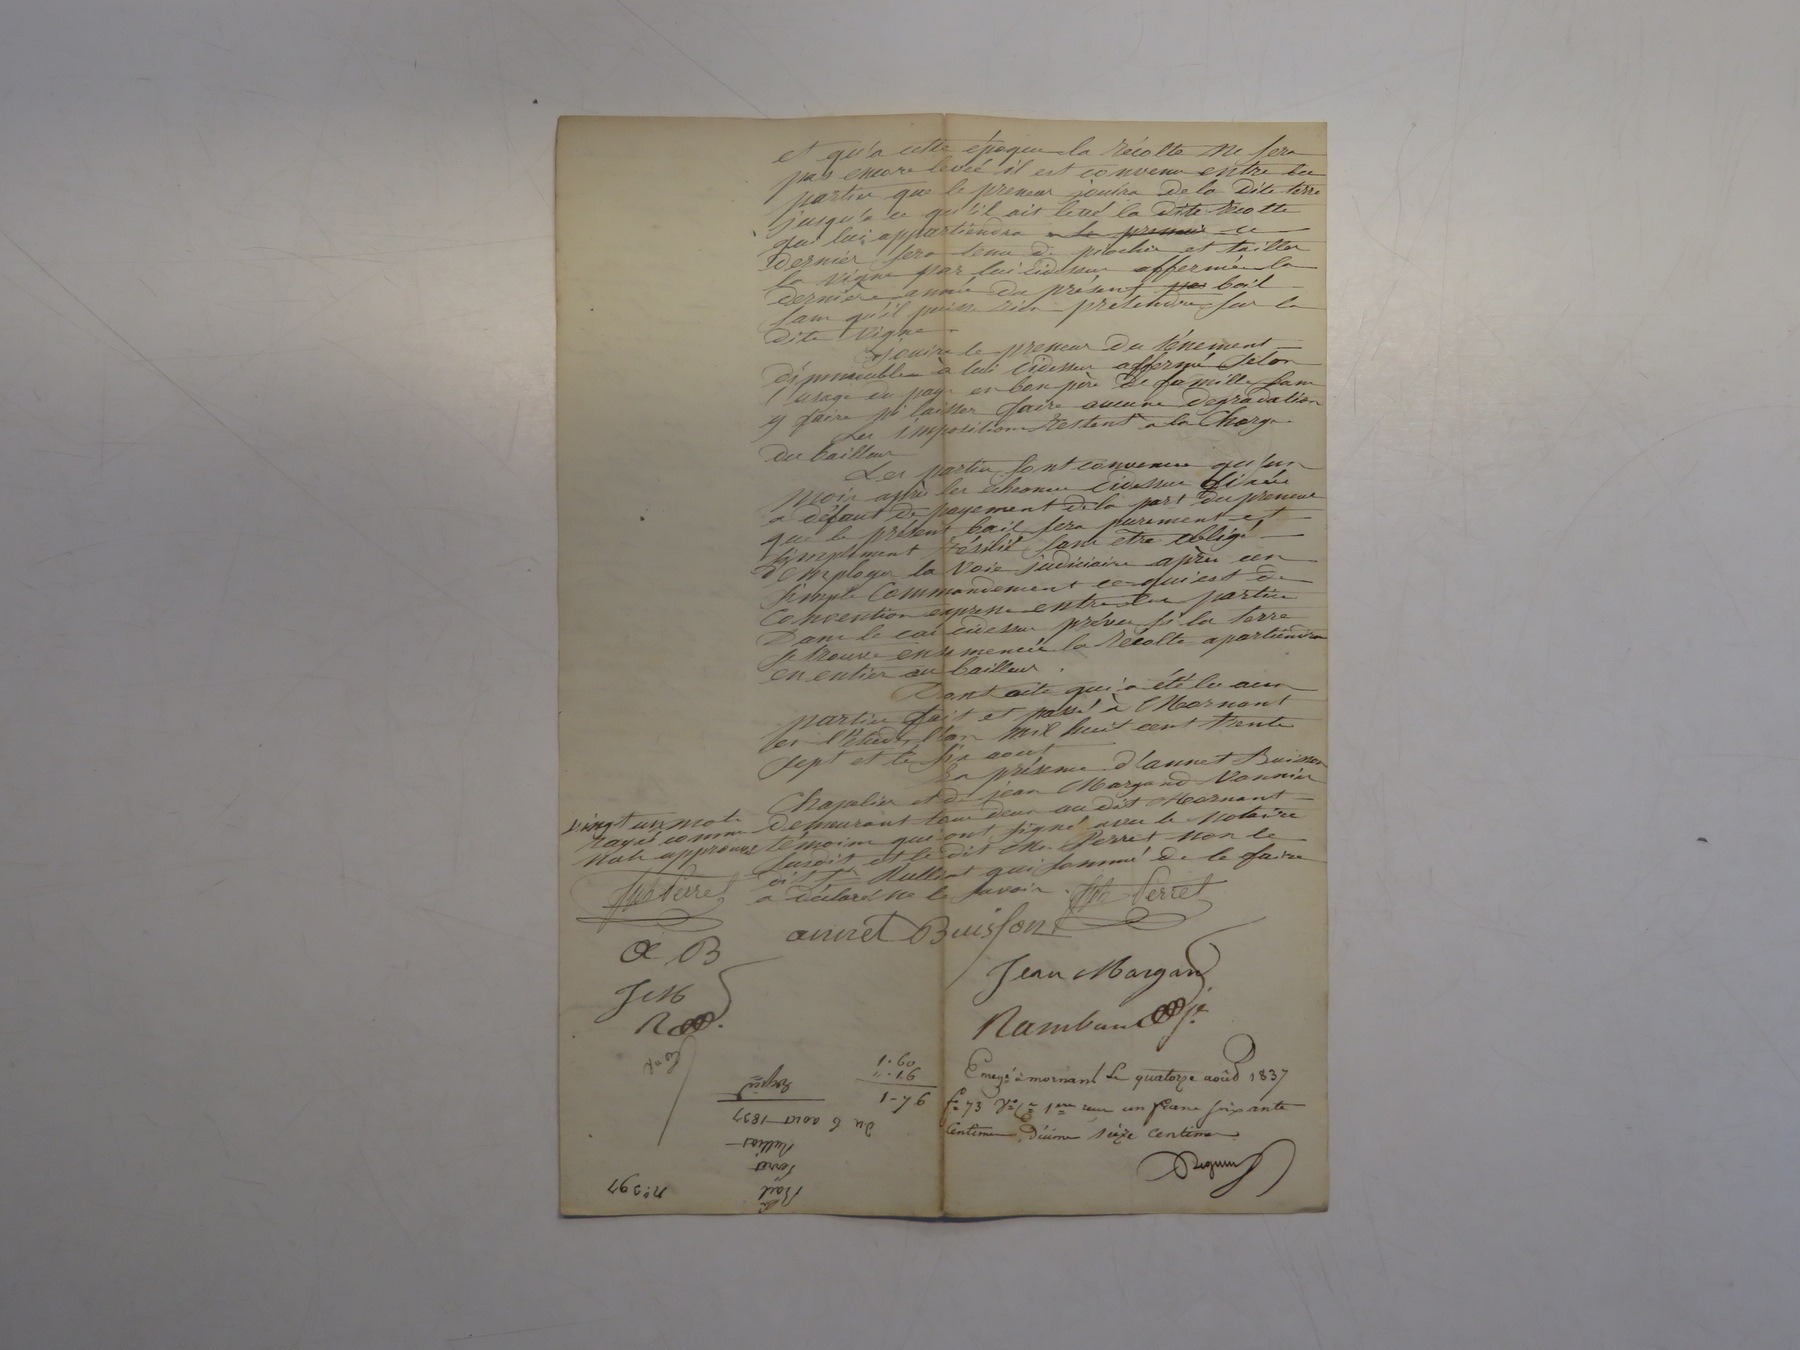 et qu'a cette époque la récolte ne sera
pas encore levée il est convenu entre les
parties que le preneur jouira de la dite terre
jusqu'a ce qu'il ait levé la dite récolte
qui lui appartiendra le preneur ce
dernier sera tenu de piocher et tailler
la vigne par lui cidessus affermée la
dernière année du présent bail
sans qu'il puisse rien prétendre sur la
dite vigne.
Jouira le preneur du tènement
d'immeubles à lui cidessus affermé selon
l'usage du pays en bon père de famille sans
y faire ni laisser faire aucune dégradation
Les impositions restent a la charge
du bailleur
Les parties sont convenues qu'un
mois après les échéances cidessus fixées
a défaut de payement de la part du preneur
que le présent bail sera purement et
simplement résilié sans etre obligé
d'employer la voie judiciaire après un
simple commandement ce qui est de
convention expresse entre les parties
Dans le cas cidessus prévu si la terre
se trouve ensemencée la récolte apartiendra
en entier au bailleur.
Dont acte qui a été lu aux
parties fait et passé à Mornant
en l'étude l'an mil huit cent trente
sept et le six aout
En présence d'annet Buisson
Chapelier et de jean Margand Vannier
demeurant tous deux au dit Mornant
témoins qui ont signé avec le notaire
susdit et le dit Perret non le
dit Rulliat qui sommé de le faire
a déclaré ne le savoir.
vingt un mots
rayés comme
nuls approuvés
Perret
Perret
annet Buisson
a B
Jean Margand
J M
R
Rambaud
Enregé a mornant le quatorze août 1837
fo 73 Vo Ce 1ere reçu un franc soixante
centimes, Décime seize centimes
1-60
"-16
1-76
No 397
Bail
Perret
à
Rulliat
Du 6 aout 1837